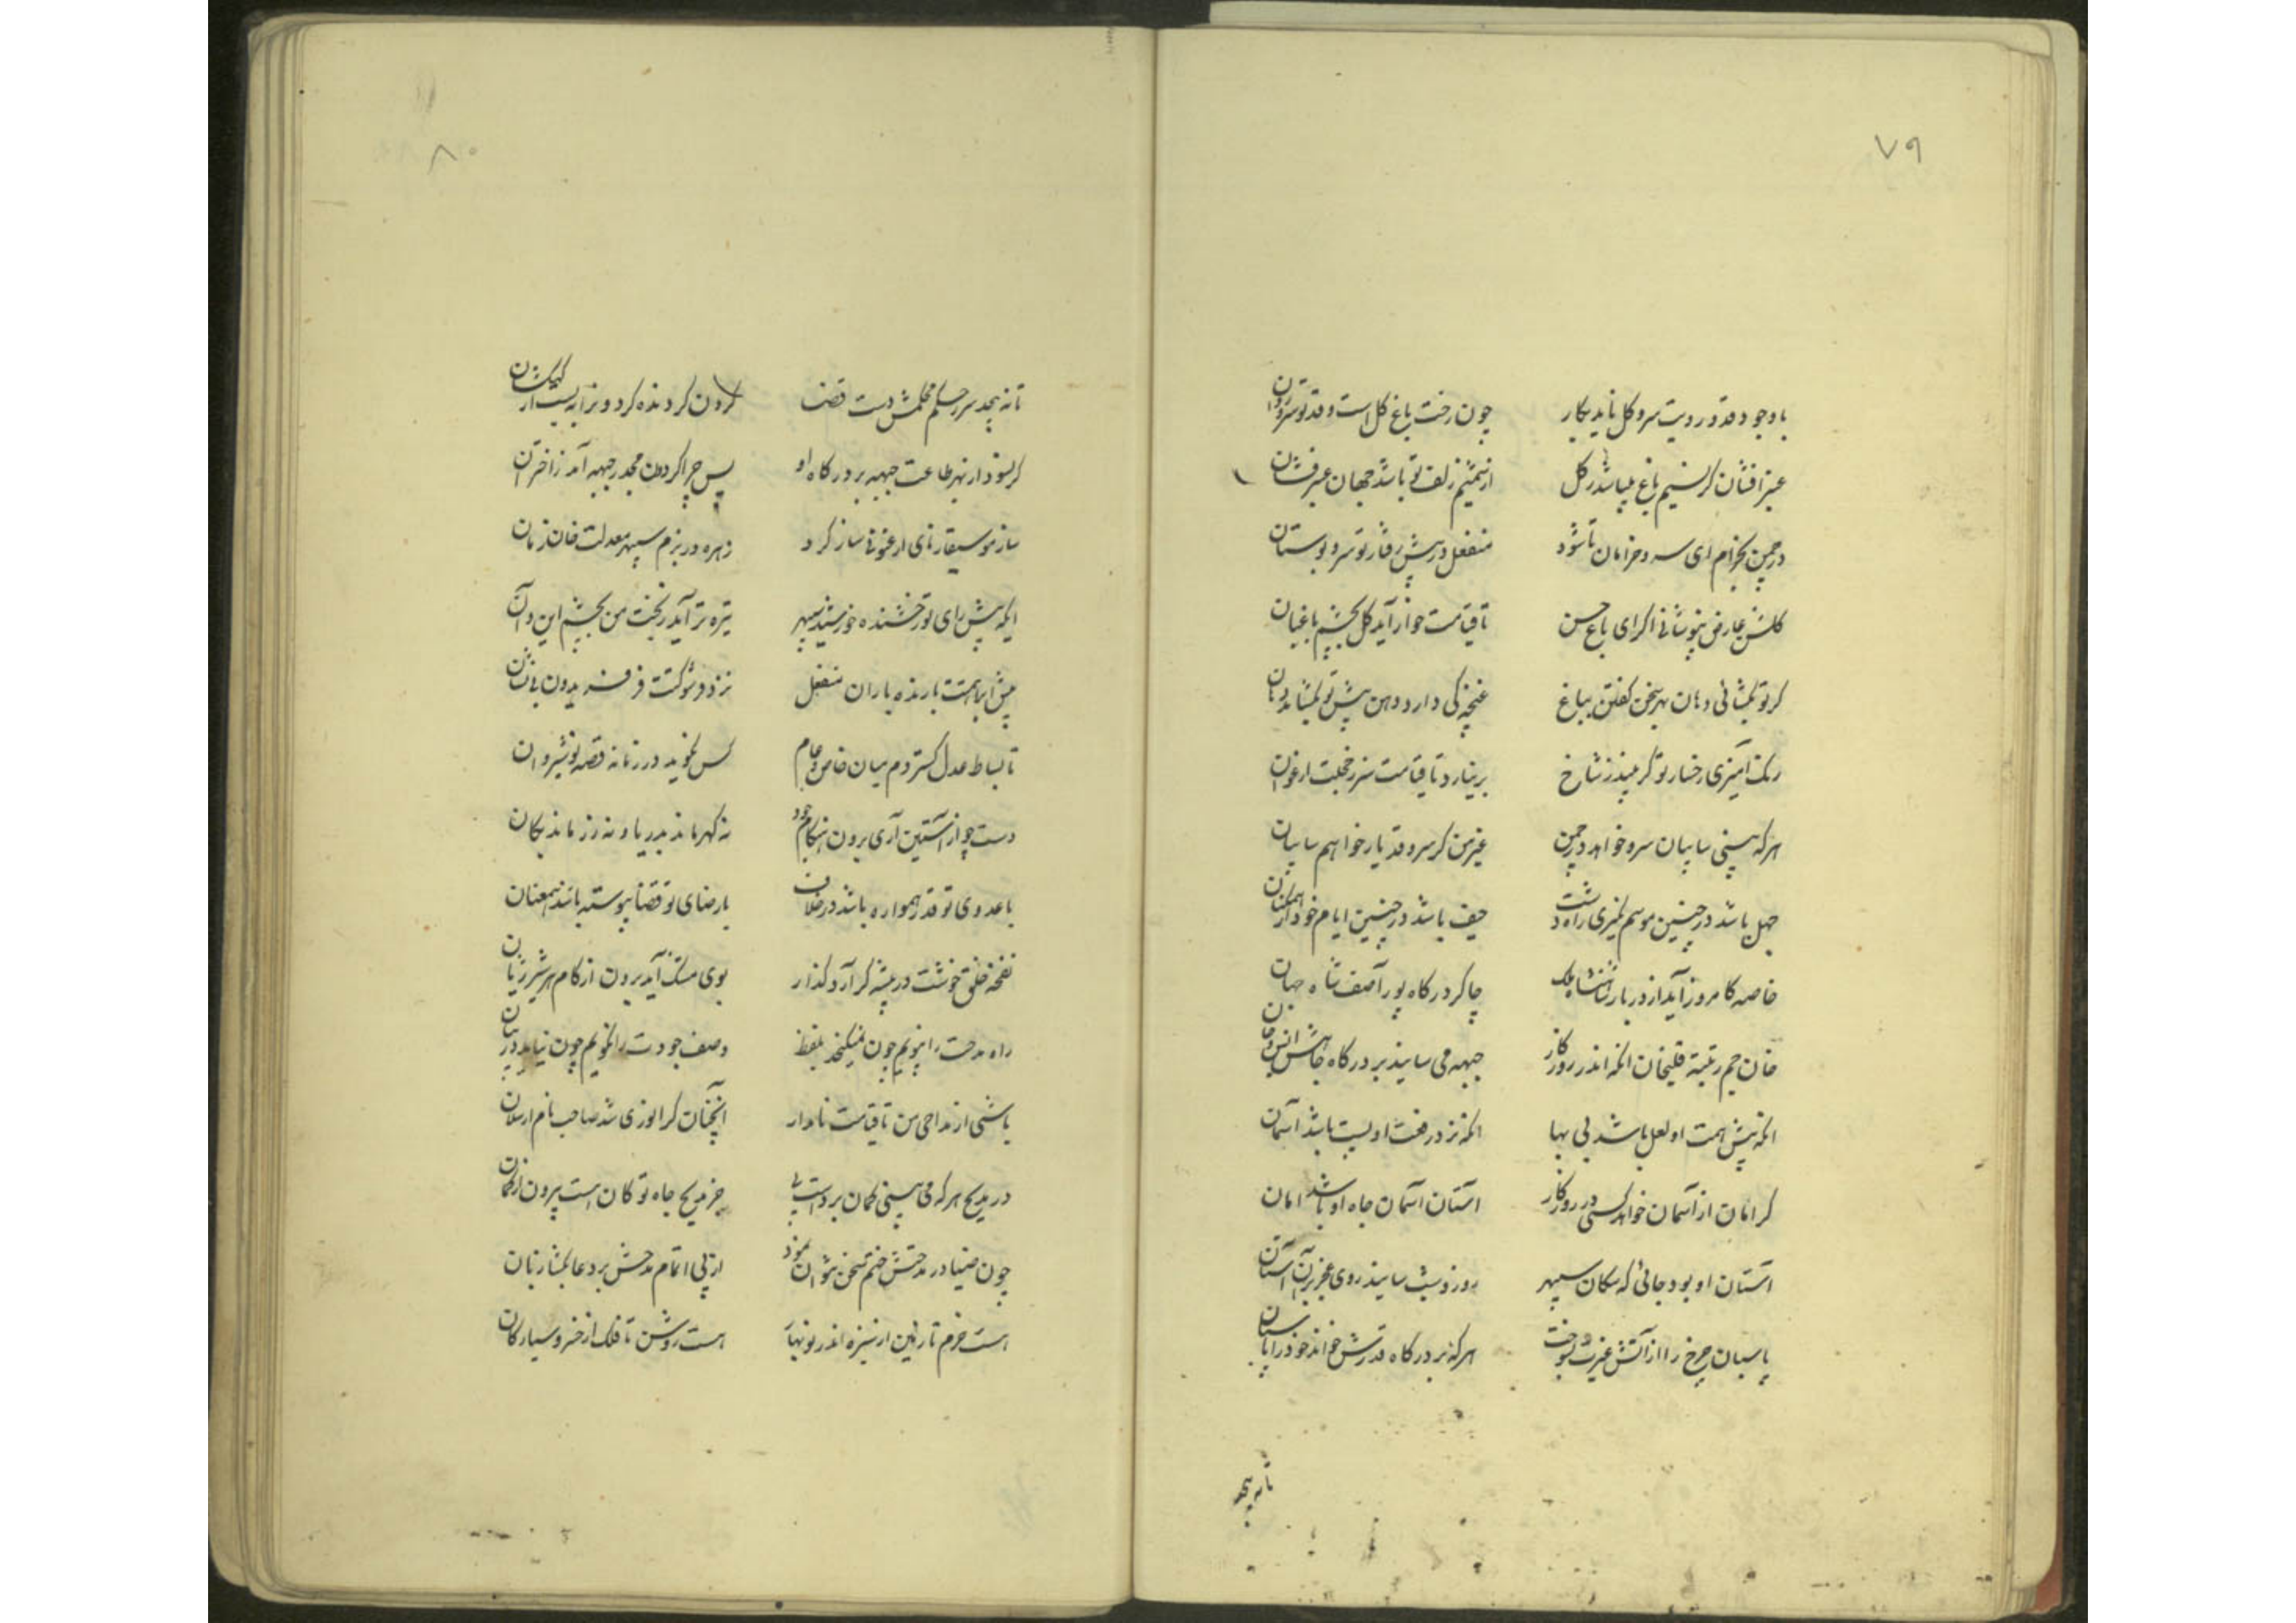 ۷۹
با وجود قد و رویت سرو کل ناید بکار چون رخت باغ کل است و قد تو سرو روان
عنبر افشان کر نسیم باغ میباشد ز کل از شمیم زلف تو باشد جهان عنبرفشان
در چمن بخرام ای سرو خرامان تا شود منفعل در پیش رفتار تو سرو بوستان
کلشن عارض بپوشانی اکر ای باغ حسن تا قیامت خوار آید کل بچشم باغبان
کر تو بکشائی دهان بهر سخن کفتن بباغ غنچه کی دارد دهن پیش تو بکشاید دهان
رنک آمیزی رخسار تو کر بیند ز شاخ بر نیارد تا قیامت سر ز خجلت ارغوان
هرکه بینی سایبان سرو خواهد در چمن غیر من کز سرو قد یار خواهم سایبان
جهل باشد در چنین موسم بمیری راه دشت حیف باشد در چنین ایام خود را
خاصه کامروز آید از دربار شاهنشاه ملک چاکر درکاه پور آصف شاه جهان
خان جم رتبه قلیخان آنکه اندر روزکار جبهه می سایند بر درکاه جاهش انس و جان
آنکه پیش همت او لعل باشد بی بها آنکه نزد رفعت او پست باشد آسمان
کر امان از آسمان خواهد کسی در روزکار آستان آسمان جاه او باشد امان
آستان او بود جائی که سکان سپهر روز و شب سایند روی عجز بر آن آستان
پاسبان چرخ را از آتش غیرت بسوخت هرکه بر درکاه قدرش خواند خود را پاسبان
تا نه پیچد
۸۰
تا نه پیچد سر ز حکم محکمش دست قضا کردن کردنده کرد و نرا به بست از کهکشان
کر نسود از بهر طاعت جبهه بر درکاه او پس چرا کردون مجدر جبهه آمد ز اختران
ساز موسیقار نای ارغنونی ساز کرد زهره در بزم سپهر معدلت خان زمان
ایکه پیش رای تو رخشنده خورشید سپهر تیره تر آید ز بخت من بچشم این و آن
پیش ابر همتت بارنده باران منفعل نزد فر و شوکتت فر فریدون بی نشان
تا بساط عدل کستردم میان خاص و عام کس نکوید در زمانه قصه نوشیروان
دست چو از آستین آری برون هنکام جود نه کهر ماند بدریا و نه زر ماند بکان
با عدوی تو قدر همواره باشد در خلاف با رضای تو قضا پیوسته باشد همعنان
نفحه خلق خوشت در بیشه کر آرد کذار بوی مشک آید برون از کام هر شیر ژیان
راه مدحت را نپویم چون نمیکنجد بلفظ وصف جودت را نکویم چون نیاید در بیان
باشی از مداحی من تا قیامت نامدار آنچنان کز انوری شد صاحب نام ارسلان
در مدیح هر که می بینی کمان برد است پی جز مدیح جاه تو کان است بیرون از کمان
چون ضیا در مدحتش ختم سخن نتوان نمود از پی اتمام مدحش بر دعا بکشا زبان
هست خرم تا زمین از سبزه اندر نوبهار هست روشن تا فلک از خسرو سیارکان